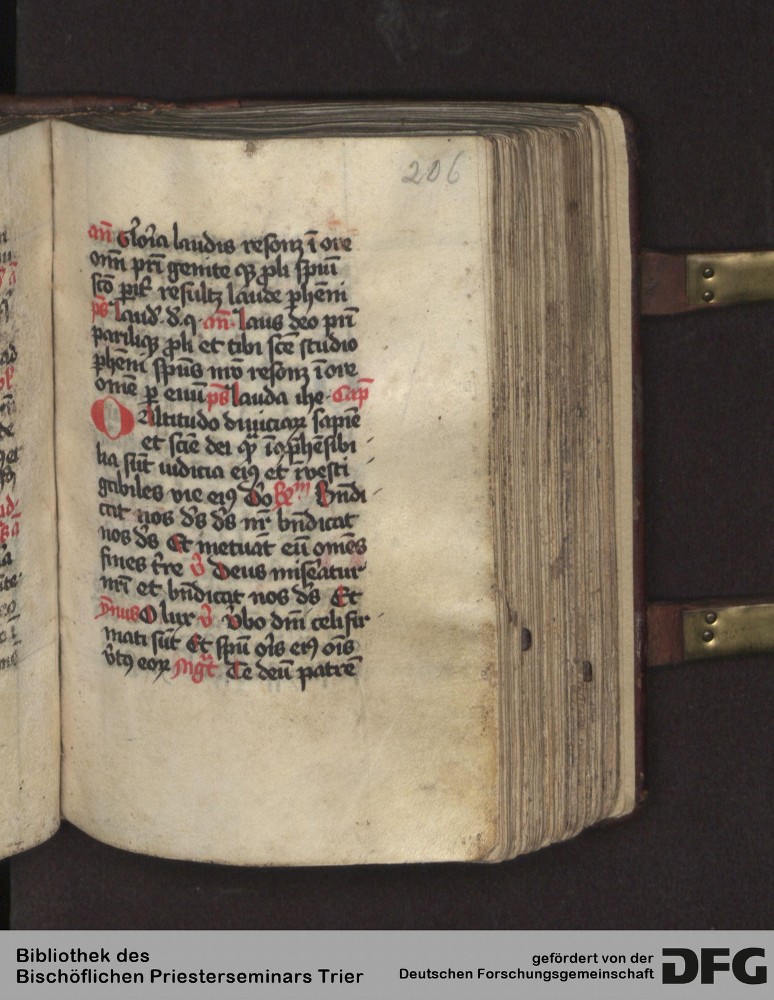 206
an̄ Gloria laudis resonꝫ ī ore
om̄i pr̄i genite qꝫ ꝓli sp̄ui
sc̄o ꝑit̓ resultꝫ laude ꝑhēni
ps̄ laud̓ d̓ q̓ an̄ laus deo pr̄i
pariliqꝫ ꝓli et tibi sc̄e studio
ꝑhēni sp̄us nr̄o resonꝫ ī ore
omē ꝑ euū ps̄ lauda ihe Cap̄
O altitudo diuiciaꝝ sapiē
et sciē dei qͣ īcōp̄hēsibi
lia sūt iudicia eiꝰ et īvesti
gabiles vie eiꝰ Do Rm̄ Bn̄di
cat nos ds̄ ds̄ nr̄ bn̄dicat
nos ds̄ Et metuāt eū omēs
fines tr̄re v̓ Deus miseatur
nr̄i et bn̄dicat nos ds̄ Et
ymnus O lux v̓ v̓bo dn̄i celi fir
mati sūt Et sp̄u oīs eiꝰ oīs
v̓tꝰ eoꝝ Mgͣt Te deū patrē
Bibliothek des
Bischöflichen Priesterseminars Trier
gefördert von der
Deutschen Forschungsgemeinschaft
DFG